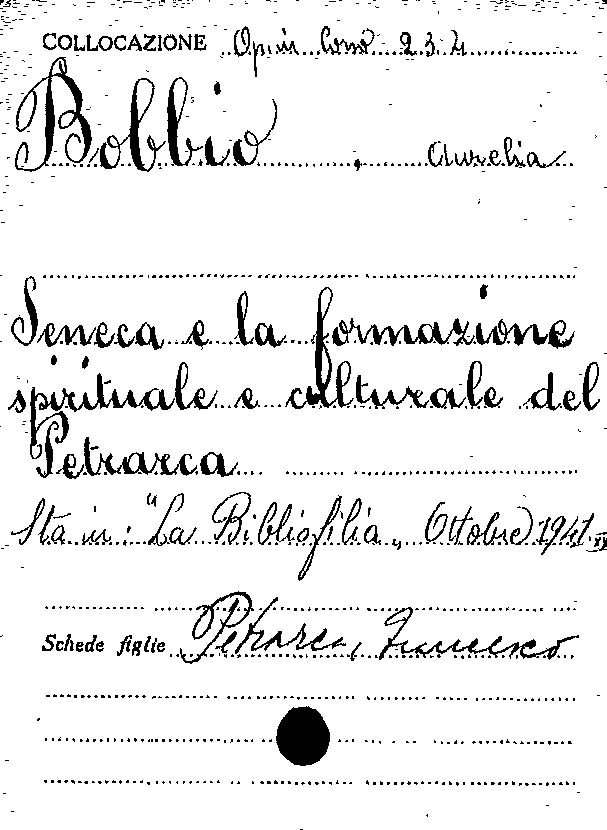 COLLOCAZIONE Opus Cons 234
Bobbio, Aurelia
Seneca e la formazione
spirituale e culturale del
Petrarca
Sta in: "La Bibliofilia„ Ottobre 1941
Schede figlie Petrarca, Francesco